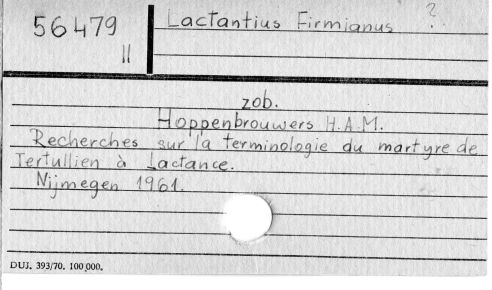 56479
II
Lactantius Firmianus ?
zob.
Hoppenbrouwers H.A.M.
Recherches sur la terminologie du martyre de
Tertullien à Lactance.
Nijmegen 1961.
DUJ. 393/70. 100 000.